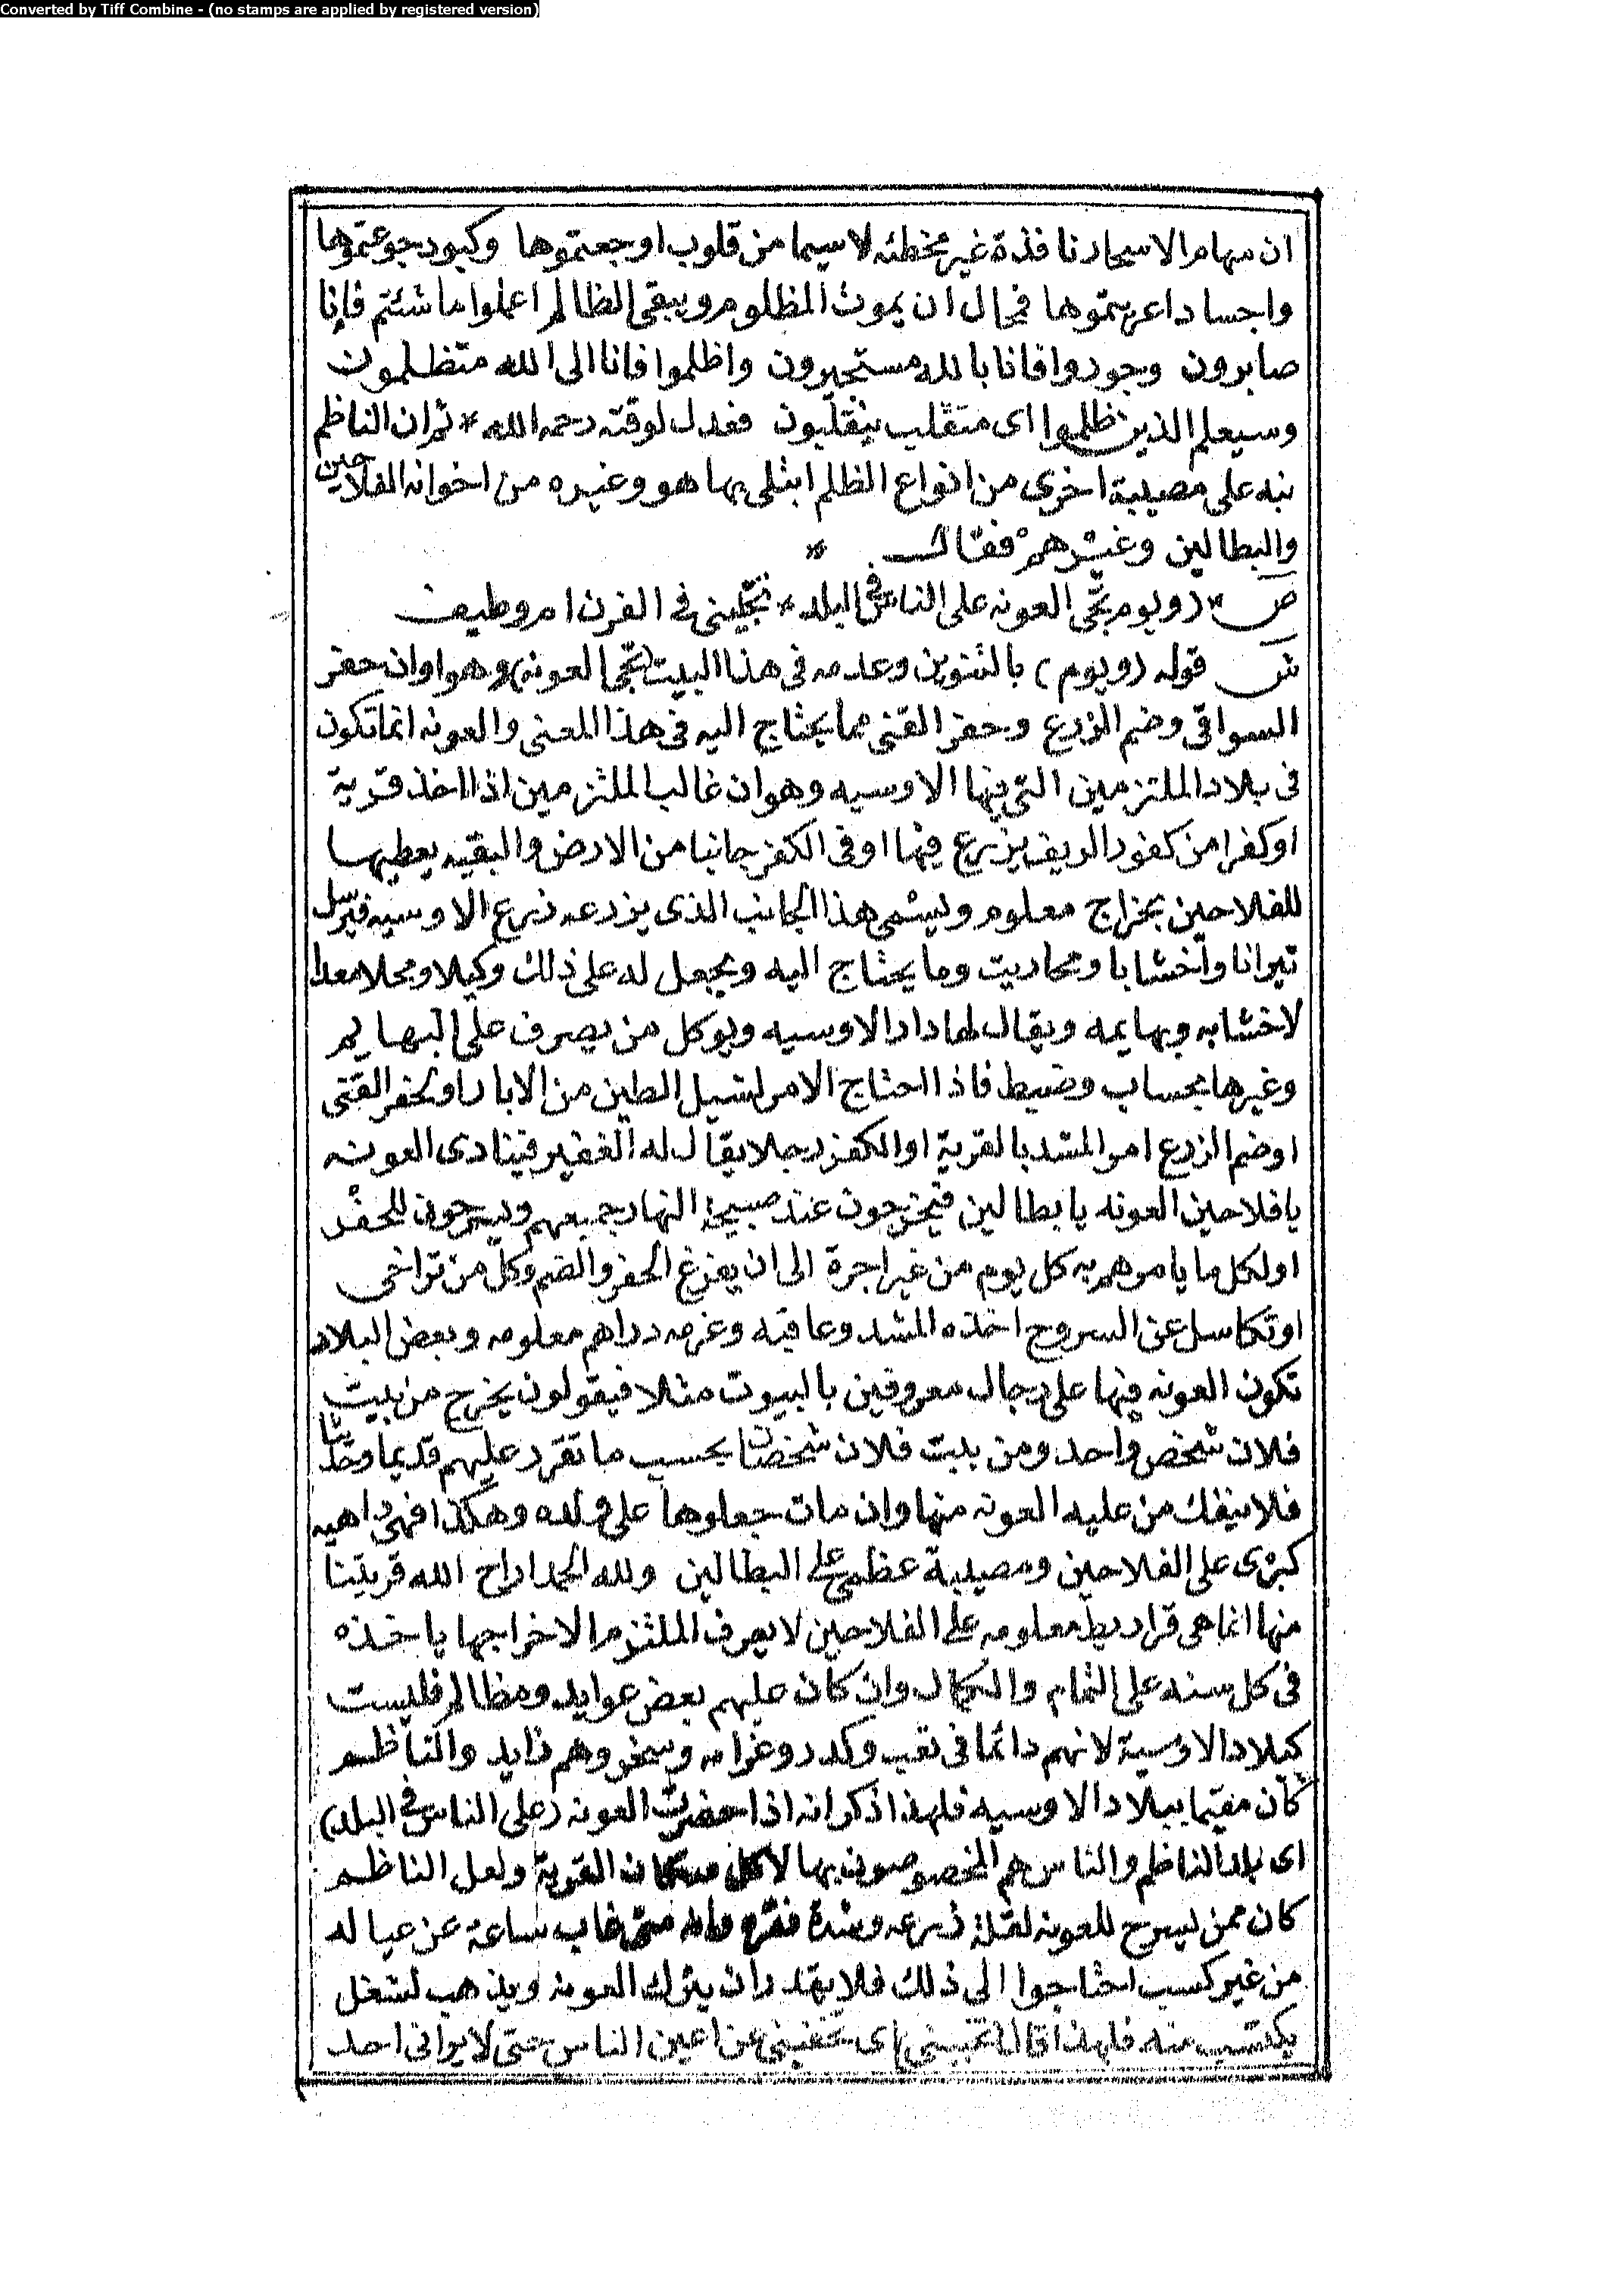 Converted by Tiff Combine - (no stamps are applied by registered version)
ان سهام الاسحار نافذة غير مخطئه لاسيما من قلوب اوجعتموها وكبود جوعتموها
واجساد اعريتموها فمحال ان يموت المظلوم ويبقى الظالم اعملوا ما شئتم فإنا
صابرون وجوروا فانا بالله مستجيرون واظلموا فانا الى الله متظلمون
وسيعلم الذين ظلموا اى منقلب ينقلبون فعدل لوقته رحمه الله * ثم ان الناظم
نبه على مصيبة اخرى من انواع الظلم ابتلى بها هو وغيره من اخوانه الفلاحين
والبطالين وغيرهم فقال *
ص * (ويوم تجى العونه على الناس فى البلد * تخبينى فى الفرن ام وطيف
ش قوله (ويوم) بالتنوين وعدمه فى هذا البيت (تجى العونه) وهو اوان حفر
السواقى وضم الزرع وحفر القنى مما يحتاج اليه فى هذا المعنى والعونه انما تكون
فى بلاد الملتزمين التى فيها الاوسيه وهو ان غالب الملتزمين اذا اخذ قرية
او كفرا من كفور الريف يزرع فيها او فى الكفر جانبا من الارض والبقيه يعطيها
للفلاحين بخراج معلوم ويسمى هذا الجانب الذى يزرعه زرع الاوسيه فيرسل
تيرانا واخشابا ومحاريت وما يحتاج اليه ويجعل له على ذلك وكيلا ومحلا معدا
لاخشابه وبهايمه ويقال لها دار الاوسيه ويوكل من يصرف على البهايم
وغيرها بحساب وضبط فاذا احتاج الامر لشيل الطين من الابار او لحفر القنى
او ضم الزرع امر المشد بالقرية او الكفر رجلا يقال له الغفير فينادى العونه
يا فلاحين العونه يا بطالين فيخرجون عند صبيحة النهار جميعهم ويسرحون للحفر
او لكل ما يامرهم به كل يوم من غير اجرة الى ان يفرغ الحفر والضم وكل من تراخى
او تكاسل عن السروح اخذه المشد وعاقبه وغرمه دراهم معلومه وبعض البلاد
تكون العونه فيها على رجال معروفين بالبيوت مثلا فيقولون يخرج من بيت
فلان شخص واحد ومن بيت فلان شخصان بحسب ما تقرر عليهم قديما وحديثا
فلا ينفك من عليه العونه منها وان مات جعلوها على ولده وهكذا فهى داهيه
كبرى على الفلاحين ومصيبة عظمى على البطالين ولله الحمد اراح الله قريتنا
منها انما هى قراريط معلومه على الفلاحين لا يعرف الملتزم الا خراجها ياخذه
فى كل سنه على التمام والكمال وان كان عليهم بعض عوايد ومظالم فليست
كبلاد الاوسية لانهم دائما فى تعب وكدر وغرامه وسخر وهم زايد والناظم
كان مقيما ببلاد الاوسيه فلهذا ذكر انه اذا حضرت العونه (على الناس فى البلد)
اى بلد الناظم والناس هم المخصوصون بها لا كل سكان القرية ولعل الناظم
كان ممن يسرح للعونه لقلة زرعه وشدة فقره وانه متى غاب ساعة عن عياله
من غير كسب احتاجوا الى ذلك فلا يقدر ان يترك العونه ويذهب لشغل
يكتسب منه فلهذا قال (تخبينى) اى تخفينى عن اعين الناس حتى لا يرانى احد